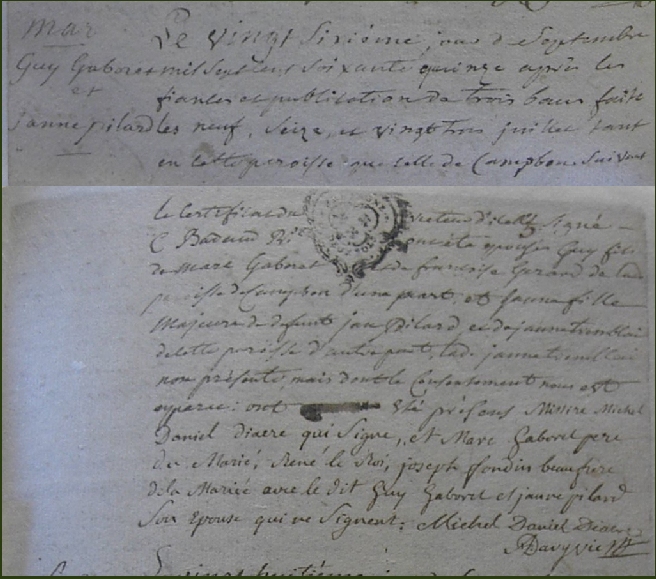 mar
Guy Gaboret
et
janne pilard
Le vingt sixiéme jour de Septembre
mil sept cens soixante quinze après les
fiances et publication de trois bans faite
les neuf, Seize, et vingt trois juillet tant
en cette paroisse que celle de Campbon Suivant
le Certificat du recteur d'icelle Signé
C Baraud épousés Guy fils
de Marc Gaboret et de francoise Gerard de la
paroisse de Campbon d'une part, et Janne fille
Majeure de defunt jan Pilard et de janne tremblai
de cette paroisse d'autre part, lade janne tremblai
non présente, mais dont le Consentement nous est
apparu: ont été présens Missire Michel
Daniel diacre qui Signe, et Marc Gaboret pere
du Marié, René le Roi, joseph fondin beaufrere
de la Mariée avec le dit Guy Gaboret et janne pilard
Son Epouse qui ne Signent: Michel Daniel Diacre
Davy vic